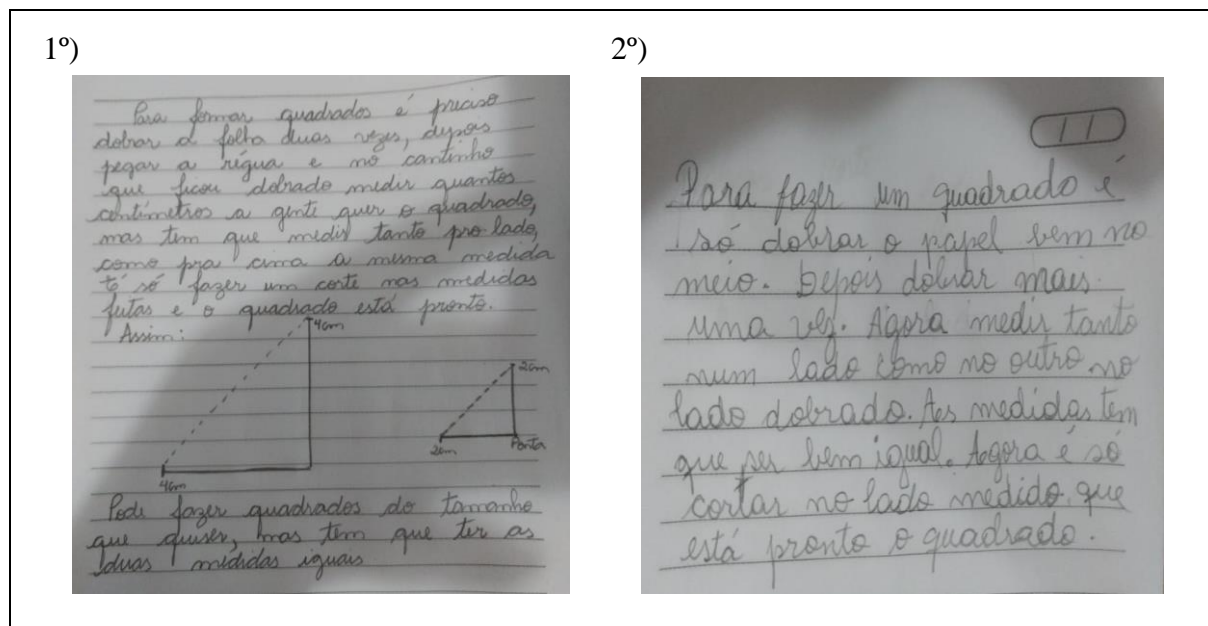 1º)
Para formar quadrados é preciso
dobrar a folha duas vezes, depois
pegar a régua e no cantinho
que ficou dobrado medir quantos
centímetros a gente quer o quadrado,
mas tem que medir tanto pro lado,
como pra cima a mesma medida
é só fazer um corte nas medidas
feitas e o quadrado está pronto.
Assim:
4cm
4cm
2cm
2cm
Ponta
Pode fazer quadrados do tamanho
que quiser, mas tem que ter as
duas medidas iguais
2º)
11
Para fazer um quadrado é
só dobrar o papel bem no
meio. Depois dobrar mais
uma vez. Agora medir tanto
num lado como no outro no
lado dobrado. As medidas tem
que ser bem igual. Agora é só
cortar no lado medido que
está pronto o quadrado.